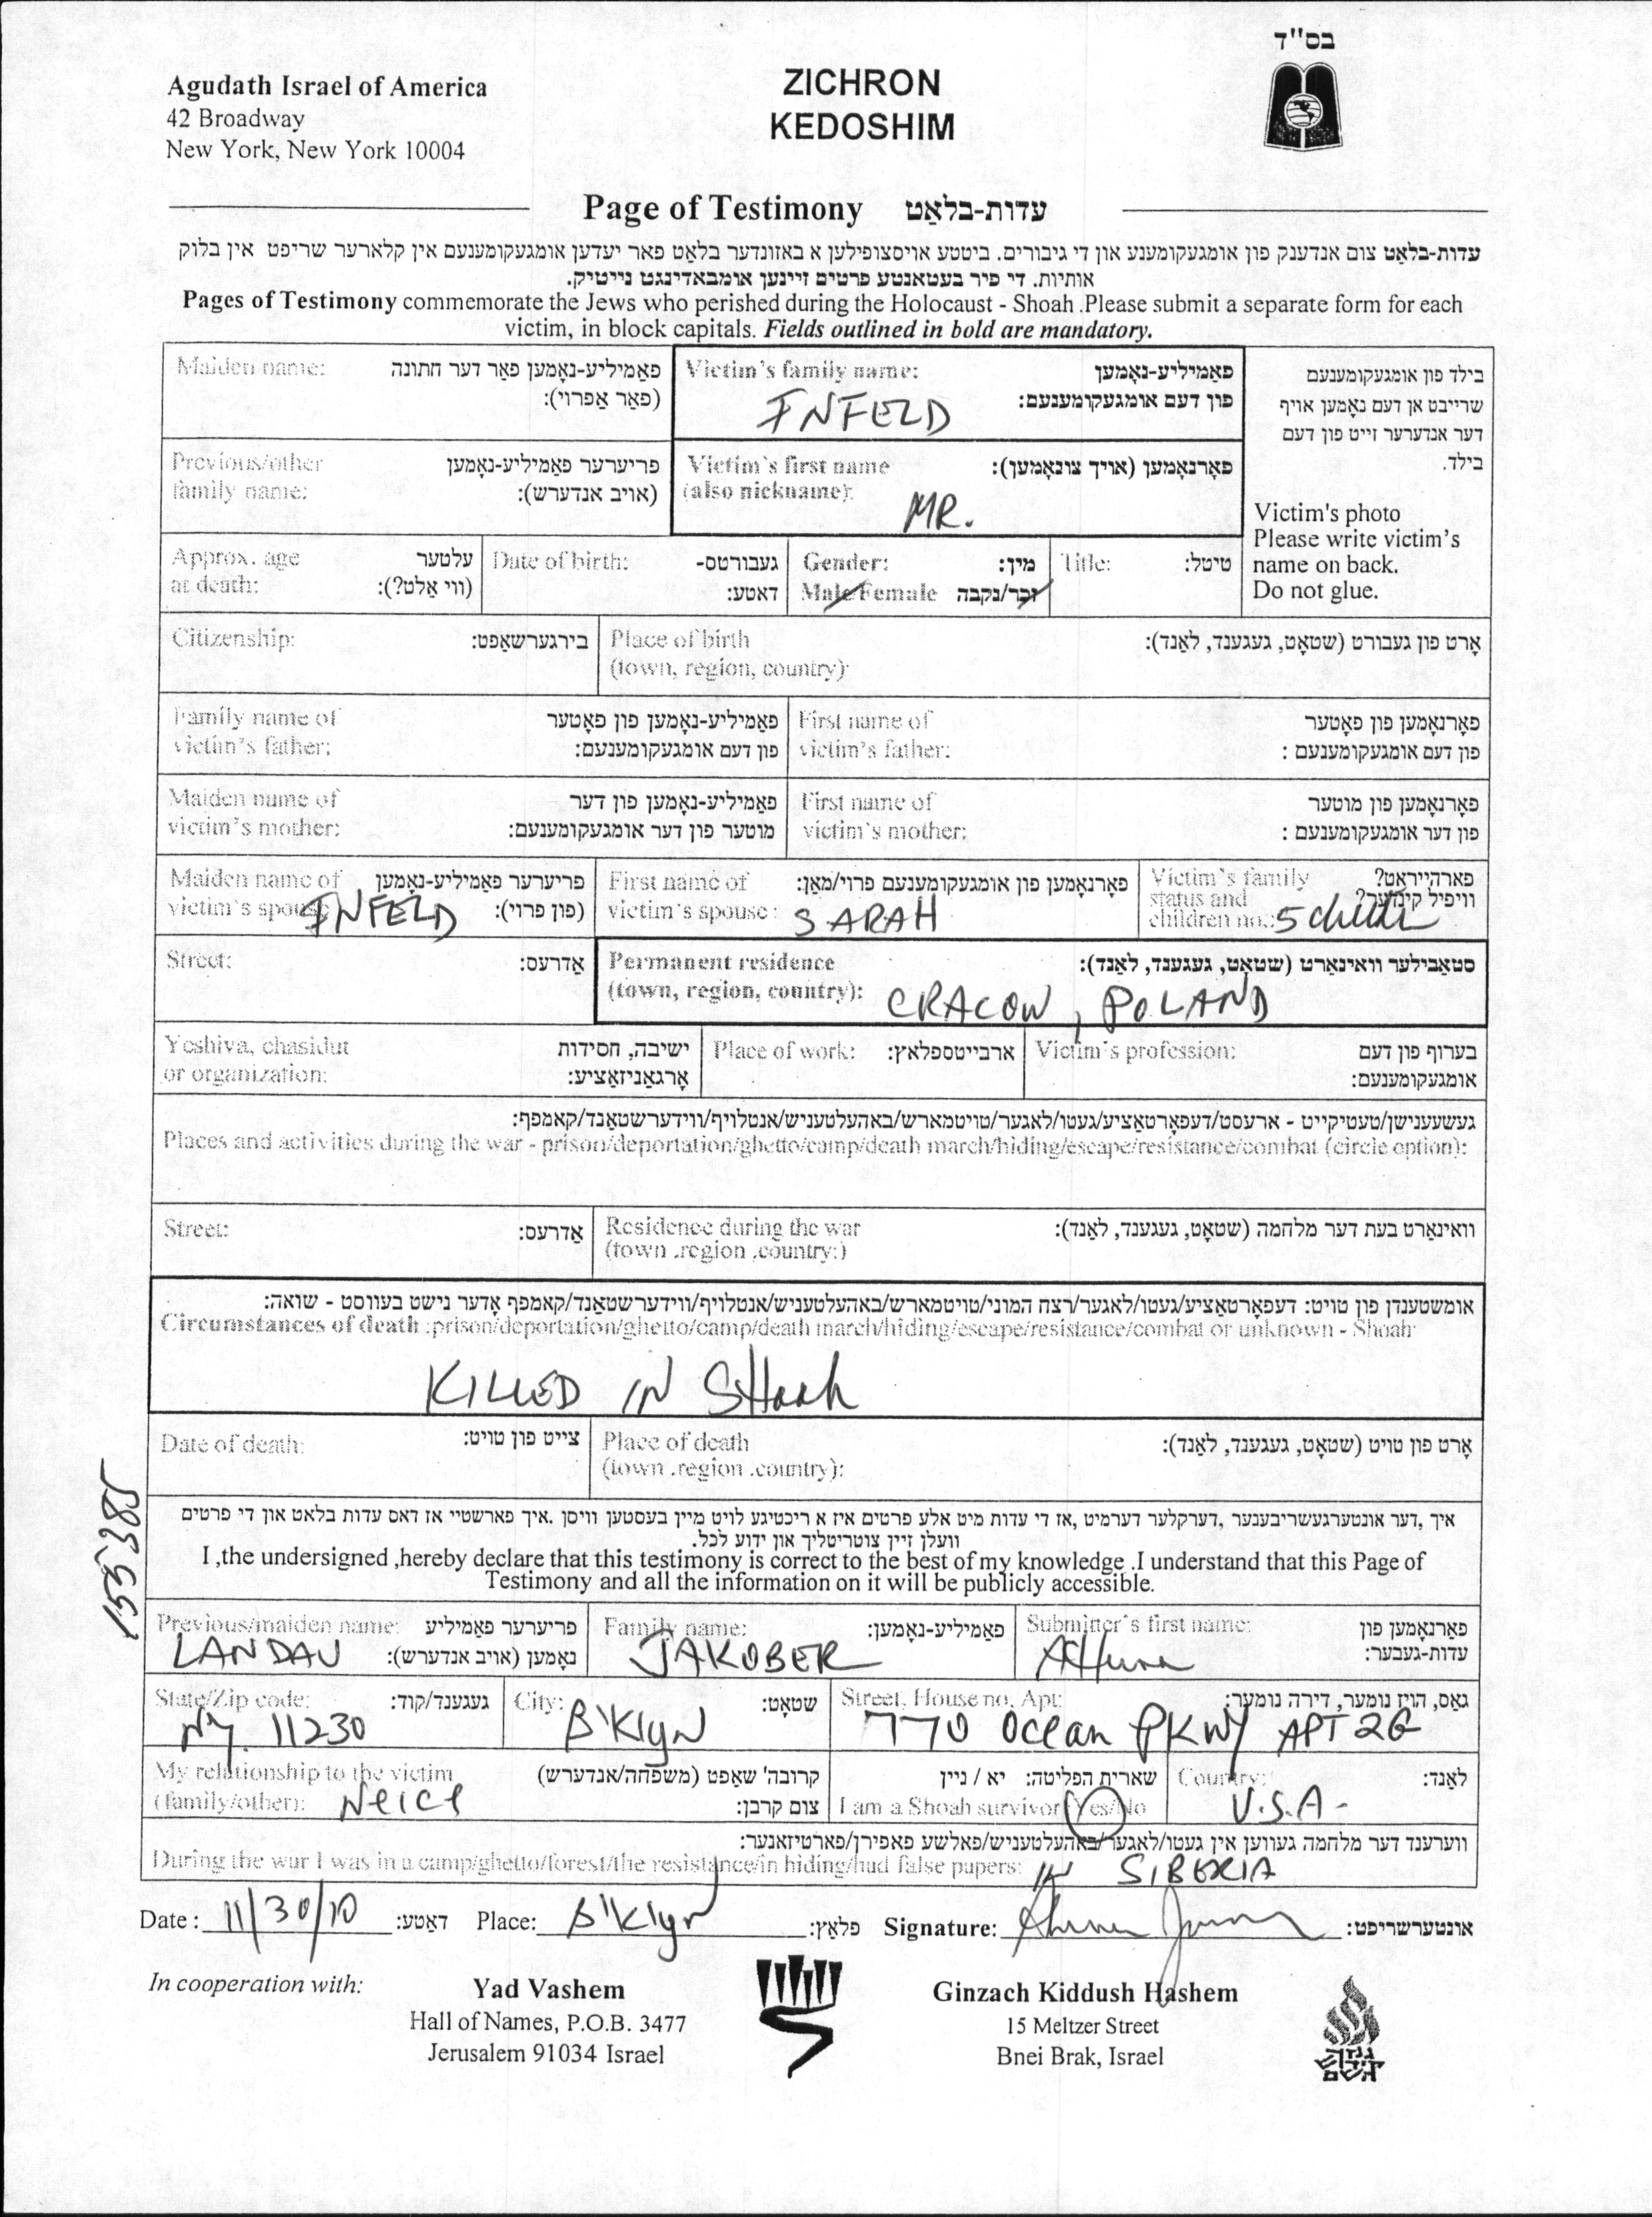 בס"ד
Agudath Israel of America
42 Broadway
New York, New York 10004
ZICHRON
KEDOSHIM
Page of Testimony עדות-בלאַט
עדות-בלאַט צום אנדענק פון אומגעקומענע און די גיבורים. ביטטע אויסצופילען א באזונדער בלאַט פאר יעדען אומגעקומענעם אין קלארער שריפט אין בלוק
אותיות. די פיר בעטאנטע פרטים זיינען אומבאדינגט נייטיק.
Pages of Testimony commemorate the Jews who perished during the Holocaust - Shoah .Please submit a separate form for each
victim, in block capitals. Fields outlined in bold are mandatory.
Maiden name: פאַמיליע-נאָמען פאַר דער חתונה
(פאַר אַפרוי):
Victim's family name: פאַמיליע-נאָמען
פון דעם אומגעקומענעם:
INFELD
בילד פון אומגעקומענעם
שרייבט אן דעם נאָמען אויף
דער אנדערער זייט פון דעם
בילד.
Victim's photo
Please write victim's
name on back.
Do not glue.
Previous/other פריערער פאַמיליע-נאָמען
family name: (אויב אנדערש):
Victim's first name פאָרנאָמען (אויך צונאָמען):
(also nickname):
MR.
Approx. age עלטער
at death: (ווי אַלט?):
Date of birth: געבורטס-
דאטע:
Gender: מין:
Male/Female זכר/נקבה
Title: טיטל:
Citizenship: בירגערשאַפט:
Place of birth אָרט פון געבורט (שטאָט, געגענד, לאַנד):
(town, region, country):
Family name of פאַמיליע-נאָמען פון פאָטער
victim's father: פון דעם אומגעקומענעם:
First name of פאָרנאָמען פון פאָטער
victim's father: פון דעם אומגעקומענעם :
Maiden name of פאַמיליע-נאָמען פון דער
victim's mother: מוטער פון דער אומגעקומענעם:
First name of פאָרנאָמען פון מוטער
victim's mother: פון דער אומגעקומענעם :
Maiden name of פריערער פאַמיליע-נאָמען
victim's spouse (פון פרוי):
INFELD
First name of פאָרנאָמען פון אומגעקומענעם פרוי/מאַן:
victim's spouse: SARAH
Victim's family פארהייראט?
status and וויפיל קינדער?
children no.: 5
Street: אַדרעס:
Permanent residence סטאַבילער וואינאָרט (שטאָט, געגענד, לאַנד):
(town, region, country): CRACOW, POLAND
Yeshiva, chasidut ישיבה, חסידות
or organization: אָרגאַניזאַציע:
Place of work: ארבייטספלאץ:
Victim's profession: בערוף פון דעם
אומגעקומענעם:
געשעענישן/טעטיקייט - ארעסט/דעפּאָרטאַציע/געטו/לאַגער/טויטמארש/באהעלטעניש/אנטלויף/ווידערשטאַנד/קאמפף:
Places and activities during the war - prison/deportation/ghetto/camp/death march/hiding/escape/resistance/combat (circle option):
Street: אַדרעס:
Residence during the war וואינאָרט בעת דער מלחמה (שטאָט, געגענד, לאַנד):
(town .region .country:)
אומשטענדן פון טויט: דעפּאָרטאַציע/געטו/לאגער/רצח המוני/טויטמארש/באהעלטעניש/אנטלויף/ווידערשטאַנד/קאמפף אָדער נישט בעוווסט - שואה:
Circumstances of death :prison/deportation/ghetto/camp/death march/hiding/escape/resistance/combat or unknown - Shoah:
KILLED IN SHoah
Date of death: צייט פון טויט:
Place of death אָרט פון טויט (שטאָט, געגענד, לאַנד):
(town .region .country):
155385
איך ,דער אונטערגעשריבענער ,דערקלער דערמיט ,אז די עדות מיט אלע פרטים איז א ריכטיגע לויט מיין בעסטען וויסן .איך פארשטיי אז דאס עדות בלאט און די פרטים
וועלן זיין צוטריטליך און ידוע לכל.
I ,the undersigned ,hereby declare that this testimony is correct to the best of my knowledge .I understand that this Page of
Testimony and all the information on it will be publicly accessible.
Previous/maiden name: פריערער פאַמיליע
LANDAU נאָמען (אויב אנדערש):
Family name: פאַמיליע-נאָמען:
JAKOBER
Submitter's first name: פאָרנאָמען פון
עדות-געבער:
State/Zip code: געגענד/קוד:
NY. 11230
City: שטאָט:
B'KlyN
Street. House no. Apt: גאַס, הויז נומער, דירה נומער:
770 Ocean PKWY APT 2G
My relationship to the victim קרובה' שאַפט (משפּחה/אנדערש)
(family/other): Neice צום קרבן:
שארית הפליטה: יא / ניין
I am a Shoah survivor Yes/No
Country: לאַנד:
U.S.A-
ווערענד דער מלחמה געווען אין געטו/לאַגער/באַהעלטעניש/פאלשע פאפירן/פארטיזאנער:
During the war I was in a camp/ghetto/forest/the resistance/in hiding/had false papers: IN SIBERIA
Date : 11/30/10 דאַטע: Place: B'Klyn פלאַץ: Signature: אונטערשריפט:
In cooperation with:
Yad Vashem
Hall of Names, P.O.B. 3477
Jerusalem 91034 Israel
Ginzach Kiddush Hashem
15 Meltzer Street
Bnei Brak, Israel
גנזך
קידוש
השם